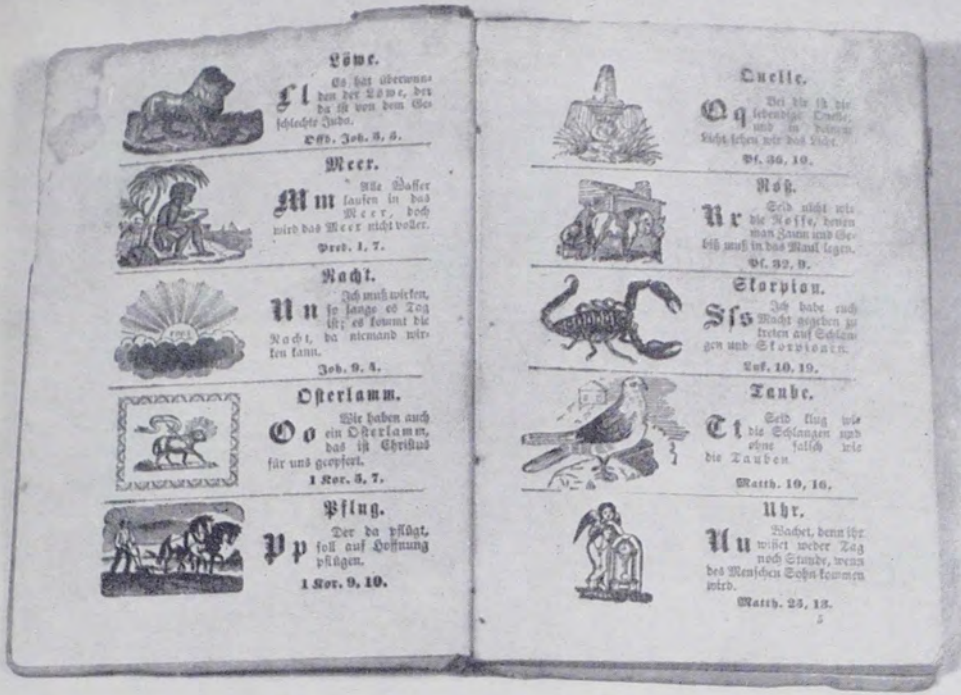 Löwe.
L l Es hat überwun-
den der Löwe, der
da ist von dem Ge-
schlechte Juda.
Offb. Joh. 5, 5.
Meer.
M m Alle Wasser
laufen in das
Meer, doch
wird das Meer nicht voller.
Pred. 1, 7.
Nacht.
N n Ich muß wirken,
so lange es Tag
ist; es kommt die
Nacht, da niemand wir-
ken kann.
Joh. 9, 4.
Osterlamm.
O o Wir haben auch
ein Osterlamm,
das ist Christus
für uns geopfert.
1 Kor. 5, 7.
Pflug.
P p Der da pflügt,
soll auf Hoffnung
pflügen.
1 Kor. 9, 10.
Quelle.
Q q Bei dir ist die
lebendige Quelle,
und in deinem
Licht sehen wir das Licht.
Ps. 36, 10.
Roß.
R r Seid nicht wie
die Rosse, denen
man Zaum und Ge-
biß muß in das Maul legen.
Ps. 32, 9.
Skorpion.
S ſ s Ich habe euch
Macht gegeben zu
treten auf Schlan-
gen und Skorpionen.
Luk. 10, 19.
Taube.
T t Seid klug wie
die Schlangen und
ohne falsch wie
die Tauben
Matth. 10, 16.
Uhr.
U u Wachet, denn ihr
wisset weder Tag
noch Stunde, wenn
des Menschen Sohn kommen
wird.
Matth. 25, 13.
5